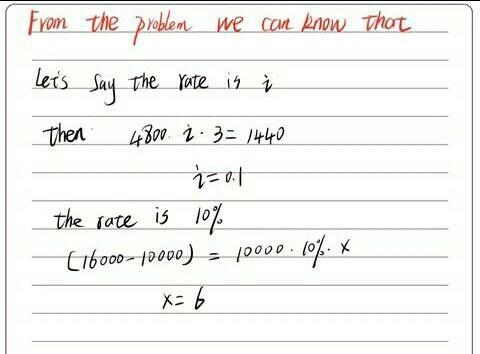 From the problem we can know that
Let's say the rate is i
then 4800. i · 3 = 1440
i = 0.1
the rate is 10%
(16000 - 10000) = 10000 · 10% · x
x = 6